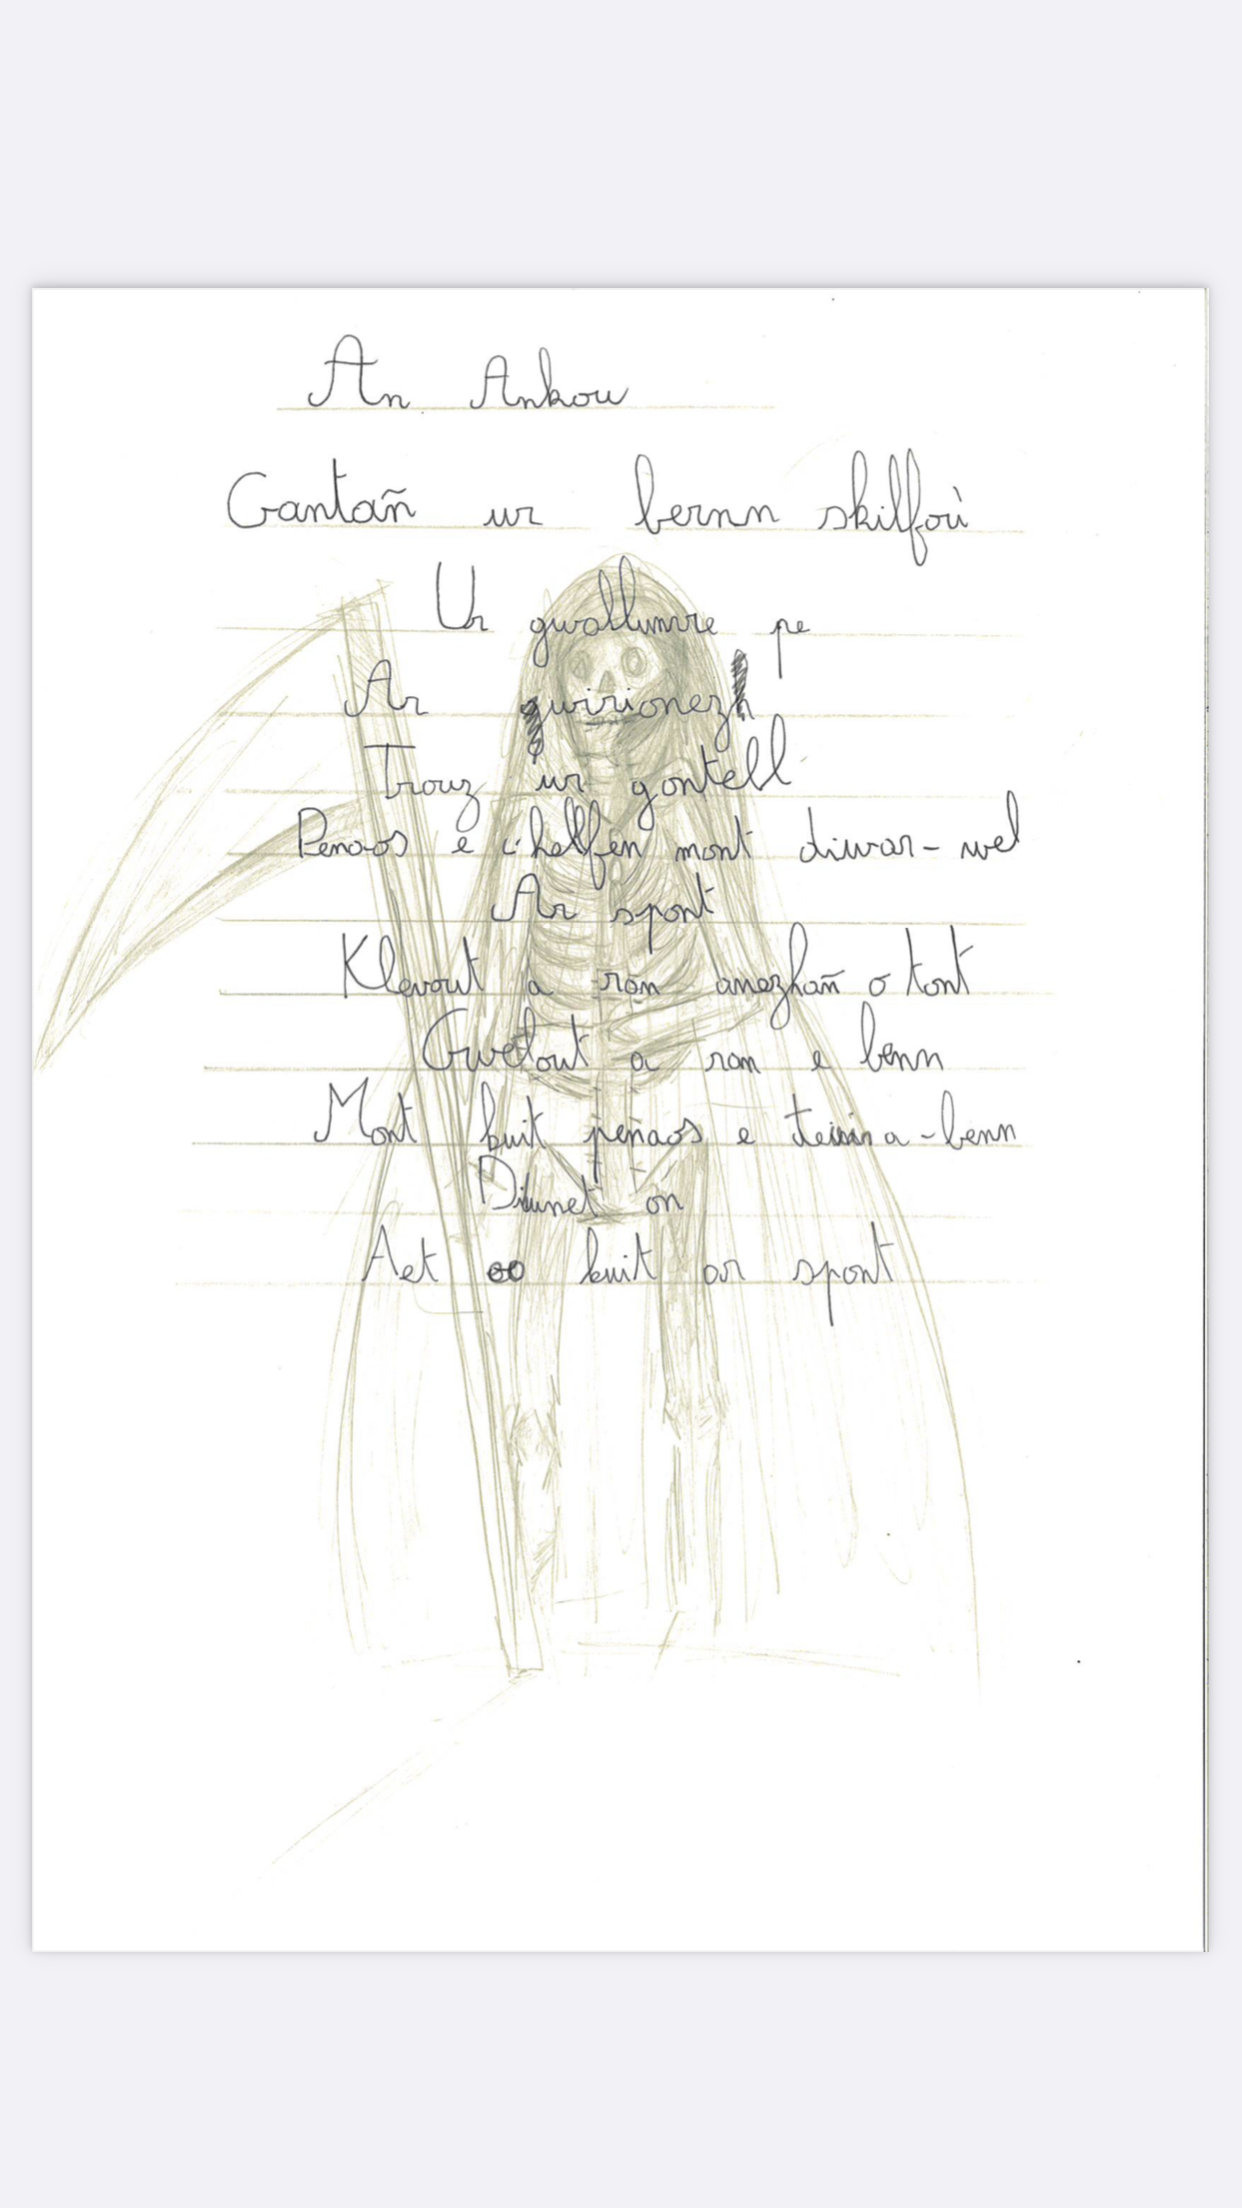 An Ankou
Gantañ ur bernn skilfoù
Ur gwallunvre pe
Ar wirionezh
Trouz ur gontell
Penaos e c'helfen mont diwar-wel
Ar spont
Klevout a ran anezhañ o tont
Gwelout a ran e benn
Mont kuit penaos e a-benn
Dihunet on
Aet kuit ar spont